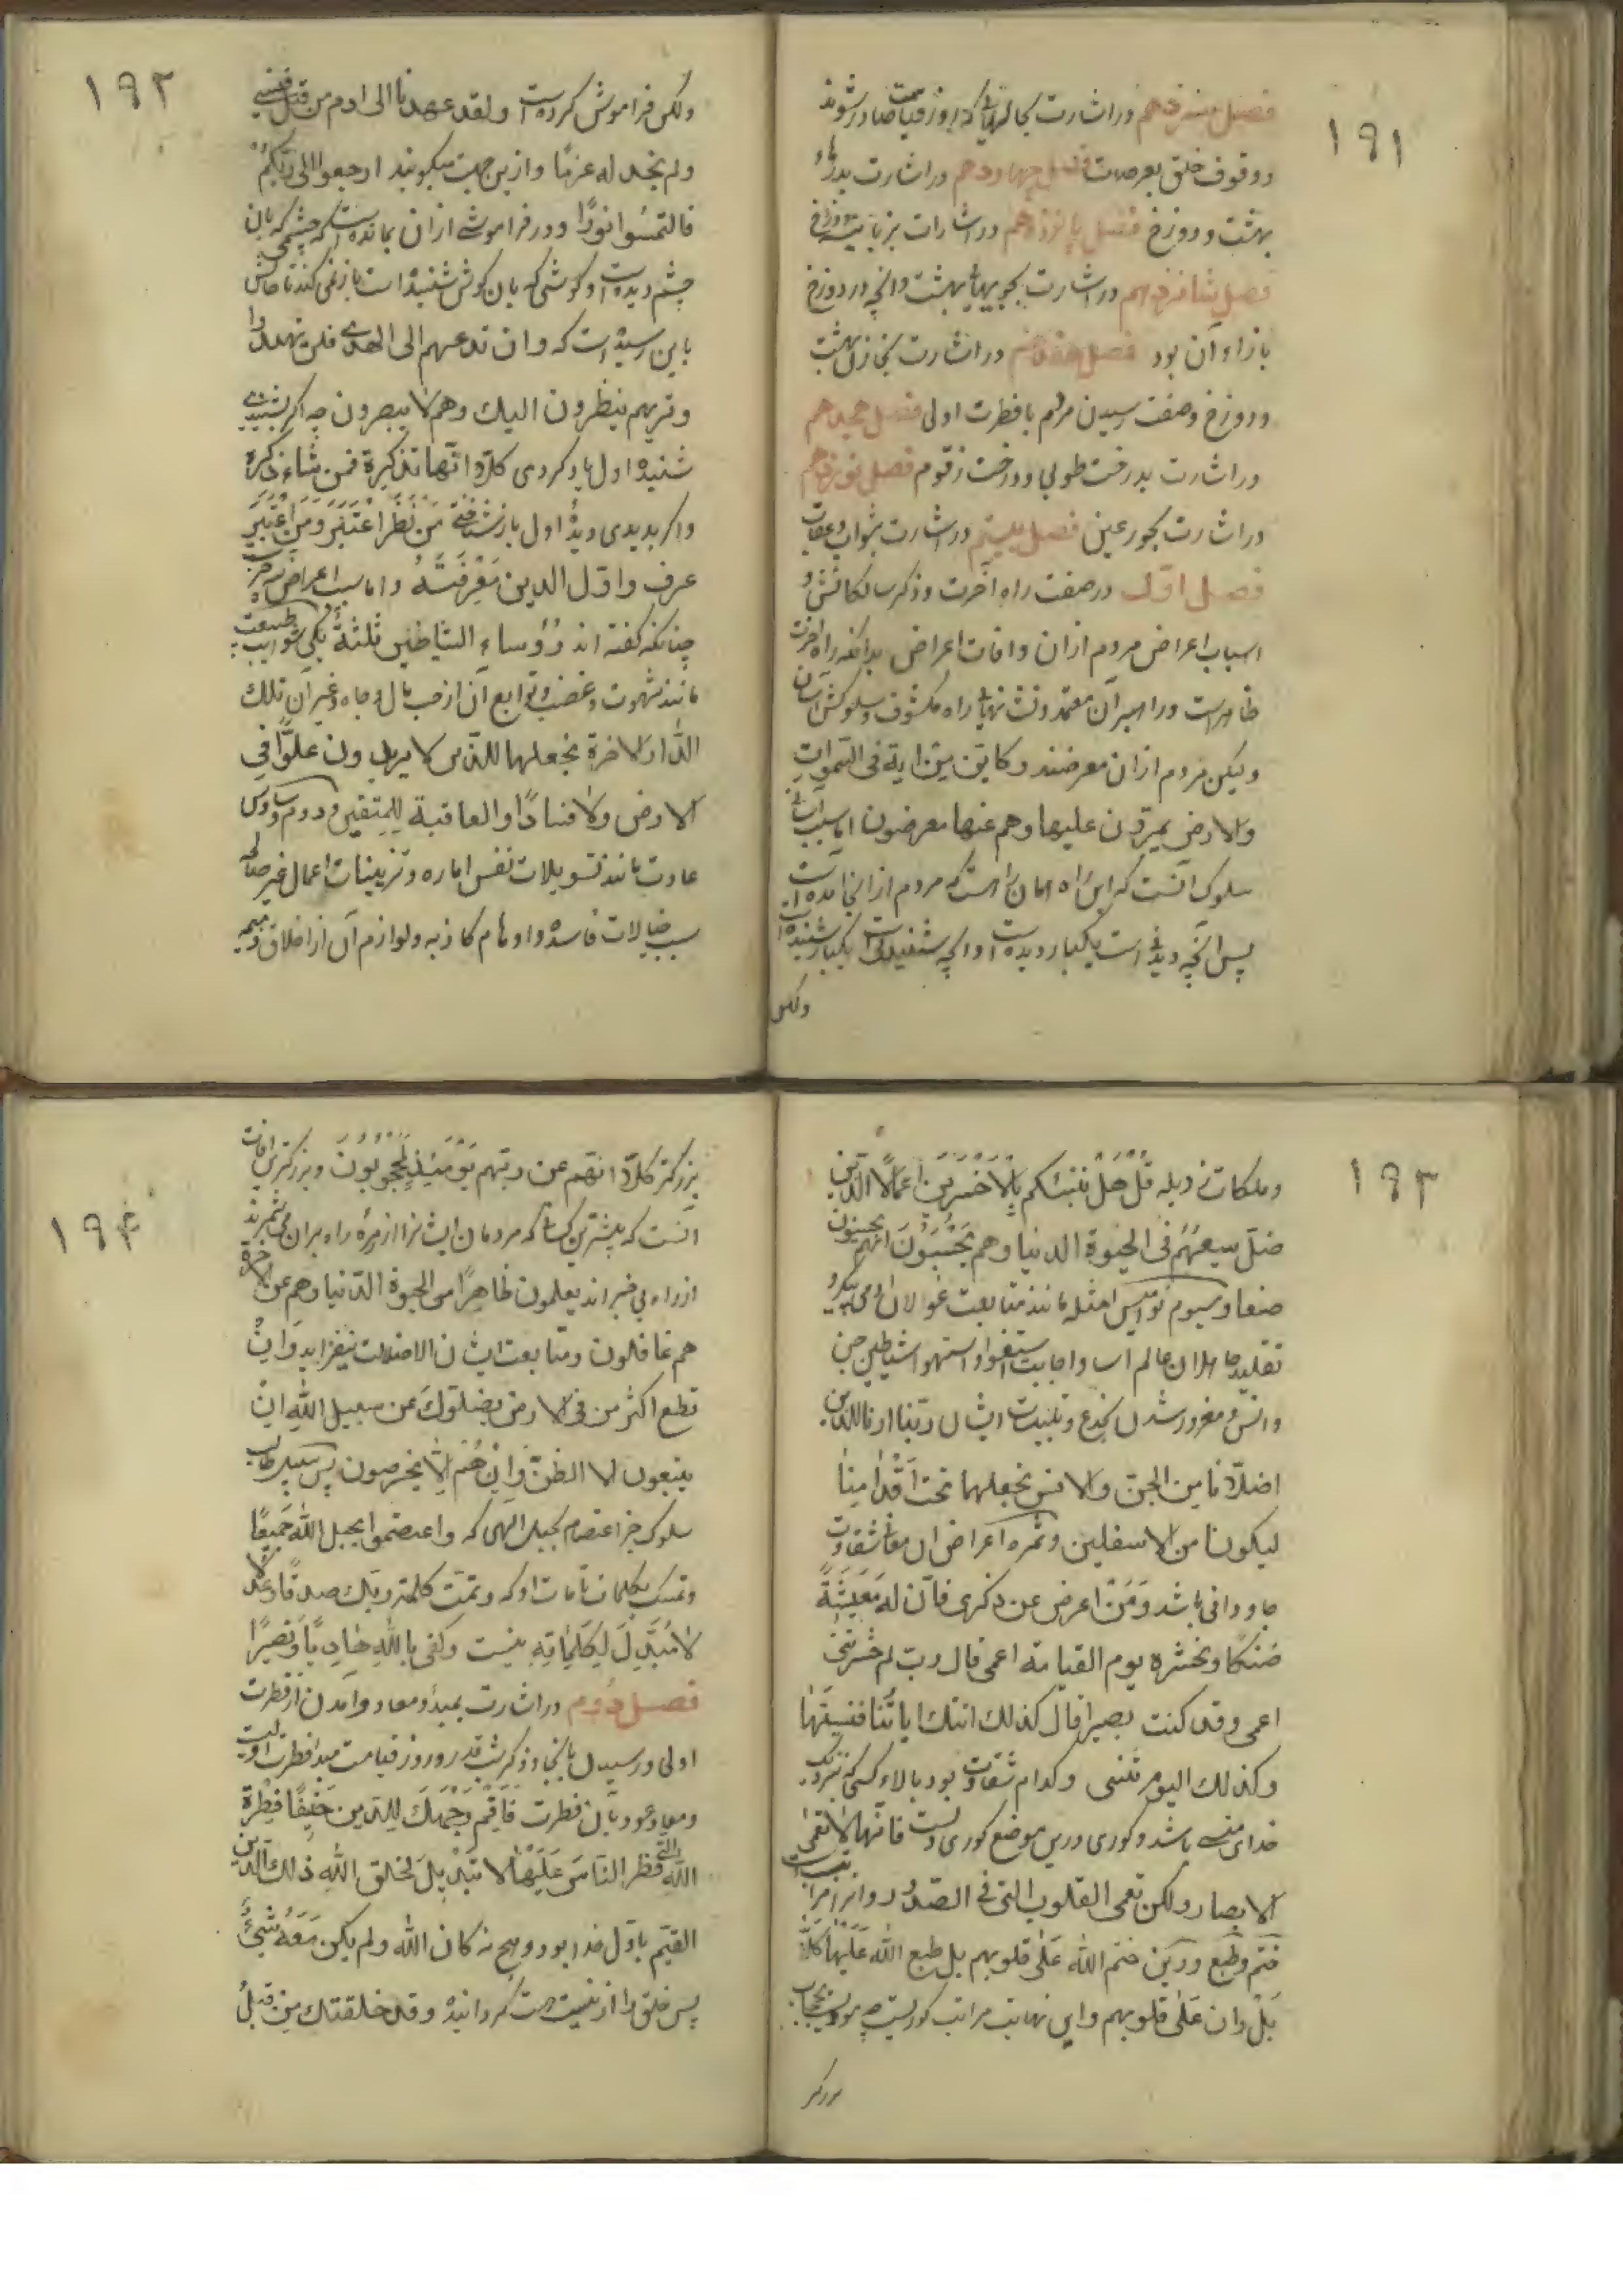 ۱۹۱
فصل سیزدهم در اشارت بحالهائی که روز قیامت حادث شوند
و وقوف خلق بعرصات فصل چهاردهم در اشارت بدرهاء
بهشت و دوزخ فصل پانزدهم در اشارات بزبانیه دوزخ
فصل شانزدهم در اشارت بجویهای بهشت و آنچه در دوزخ
بازاء آن بود فصل هفدهم در اشارت بخازن بهشت
و دوزخ و صفت رسیدن مردم با فطرت اولی فصل هجدهم
در اشارت بدرخت طوبی و درخت زقوم فصل نوزدهم
در اشارت بحور عین فصل بیستم در اشارت بثواب و عقاب
فصل اول در صفت راه آخرت و ذکر سالکانش و
اسباب اعراض مردم ازان و آفات اعراض بدانکه راه آخرت
ظاهر است و راهبران معتمد و نشانهای راه مکشوف و سلوکش آسان
ولیکن مردم ازان معرضند و کاین من ایة فی السموات
والارض یمرون علیها وهم عنها معرضون اما سبب آسانی
سلوک آنست که این راه همان راهست که مردم از آنجا آمده است
پس آنچه دیدنی است یکبار دیده است و آنچه شنیدنی است یکبار شنیده است
ولکن
۱۹۲
ولکن فراموش کرده است ولقد عهدنا الی ادم من قبل فنسی
ولم نجد له عزما و ازین جهت میگویند ارجعوا الی ربکم
فالتمسوا نورا و در فراموشی ازان بمانده است که چشمی که بآن
چشم دیده است و گوشی که بآن گوش شنیده است باز نمی کند تا حالش
باین رسیده است که وان تدعهم الی الهدی فلن یهتدوا
وتریهم ینظرون الیک وهم لا یبصرون چه اگر بشنیدی
شنیدهٔ اول یاد کردی کلا انها تذکرة فمن شاء ذکره
و اگر بدیدی دیدهٔ اول باز شناختی من نظر اعتبر ومن اعتبر
عرف واول الدین معرفته و اما سبب اعراض سه چیز است
چنانکه گفته اند رؤساء الشیاطین ثلثة یکی شوایب طبیعت
مانند شهوت و غضب و توابع آن از حب مال و جاه و غیر آن تلک
الدار الاخرة نجعلها للذین لا یریدون علوا فی
الارض ولا فسادا والعاقبة للمتقین و دوم وساوس
عادت مانند تسویلات نفس اماره و تزیینات اعمال غیر صالحه
بسبب خیالات فاسده و اوهام کاذبه و لوازم آن از اخلاق ذمیمه
۱۹۳
و ملکات ذیله قل هل ننبئکم بالاخسرین اعمالا الذین
ضل سعیهم فی الحیوة الدنیا وهم یحسبون انهم یحسنون
صنعا و سیوم نوامیس امثله مانند متابعت غولان آدمی پیکر و
تقلید جاهلان عالم آسا و اجابت استغوا و استهوا شیاطین جن
و انس و مغرور شدن بخدع و تلبیسات ایشان ربنا ارنا اللذین
اضلانا من الجن والانس نجعلهما تحت اقدامنا
لیکونا من الاسفلین و ثمره اعراض ان معنا شقاوت
جاودانی باشد ومن اعرض عن ذکری فان له معیشة
ضنکا ونحشره یوم القیامة اعمی قال رب لم حشرتنی
اعمی وقد کنت بصیرا قال کذلک اتتک ایاتنا فنسیتها
وکذلک الیوم تنسی و کدام شقاوت بود بالاء کسی که نزدیک
خدای منسی باشد و کوری درین موضع کوری دلست فانها لا تعمی
الابصار ولکن تعمی القلوب التی فی الصدور و آنرا مراتب است
ختم و طبع و رین ختم الله علی قلوبهم بل طبع الله علیها کلا
بل ران علی قلوبهم و این نهایت مراتب کوریست چه مودیست بحجاب
بزرگتر
۱۹۴
بزرگتر کلا انهم عن ربهم یومئذ لمحجوبون و بزرگترین آفات
آنست که بیشترین کسانی که مردمان ایشانرا از زمرهٔ راه بران می شمرند
از راه بی خبراند یعلمون ظاهرا من الحیوة الدنیا وهم عن الاخرة
هم غافلون و متابعت ایشان الا ضلالت نیفزاید وان
تطع اکثر من فی الارض یضلوک عن سبیل الله ان
یتبعون الا الظن وان هم الا یخرصون پس سبیل طالب
سلوک جز اعتصام بحبل الهی که واعتصموا بحبل الله جمیعا
و تمسک بکلمات تامات او که وتمت کلمة ربک صدقا وعدلا
لا مبدل لکلماته نیست وکفی بالله هادیا ونصیرا
فصل دویم در اشارت بمبدأ و معاد و آمدن از فطرت
اولی و رسیدن بآنجا و ذکر شب قدر و روز قیامت مبدا فطرت اولیست
و معاد عود بآن فطرت فاقم وجهک للدین حنیفا فطرة
الله التی فطر الناس علیها لا تبدیل لخلق الله ذلک الدین
القیم باول خدا بود و هیچ نه کان الله ولم یکن معه شیئ
پس خلق را از نیست هست گردانیده وقد خلقتک من قبل